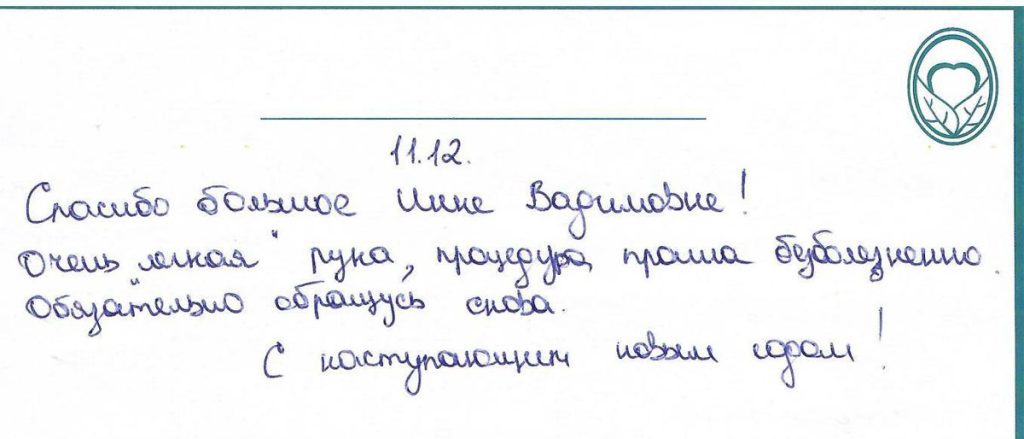 11.12.
Спасибо большое Инне Вадимовне!
Очень „легкая" рука, процедура прошла безболезненно.
Обязательно обращусь снова.
С наступающим новым годом!